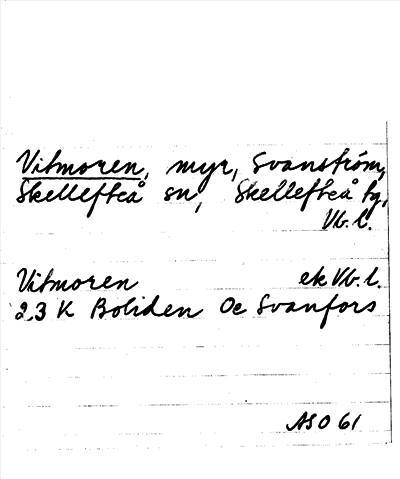 Vitmoren, myr, Svanström,
Skellefteå sn, Skellefteå tg,
Vb. l.
Vitmoren ek Vb. l.
23 K Boliden Oc Svanfors
ASO 61